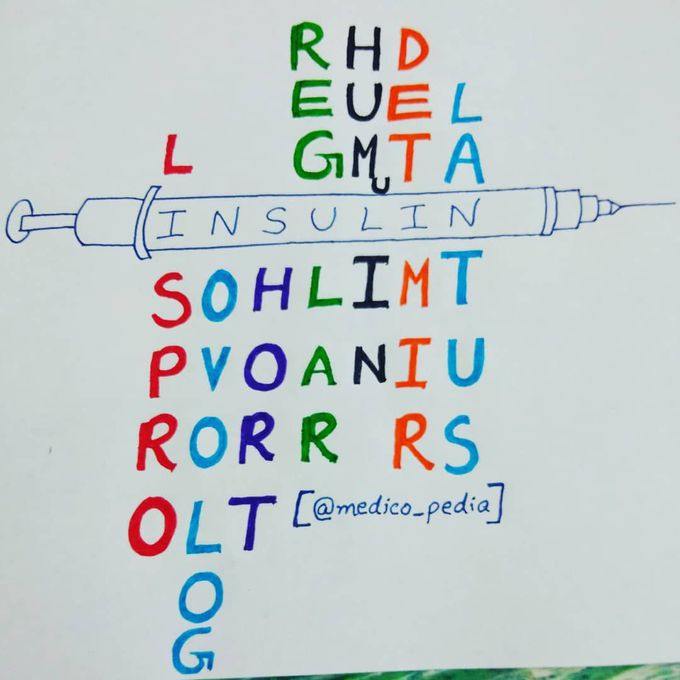 R H D
E U E L
L G M T A
U
INSULIN
S O H L I M T
P V O A N I U
R O R R R S
O L T [@medico_pedia]
O
G